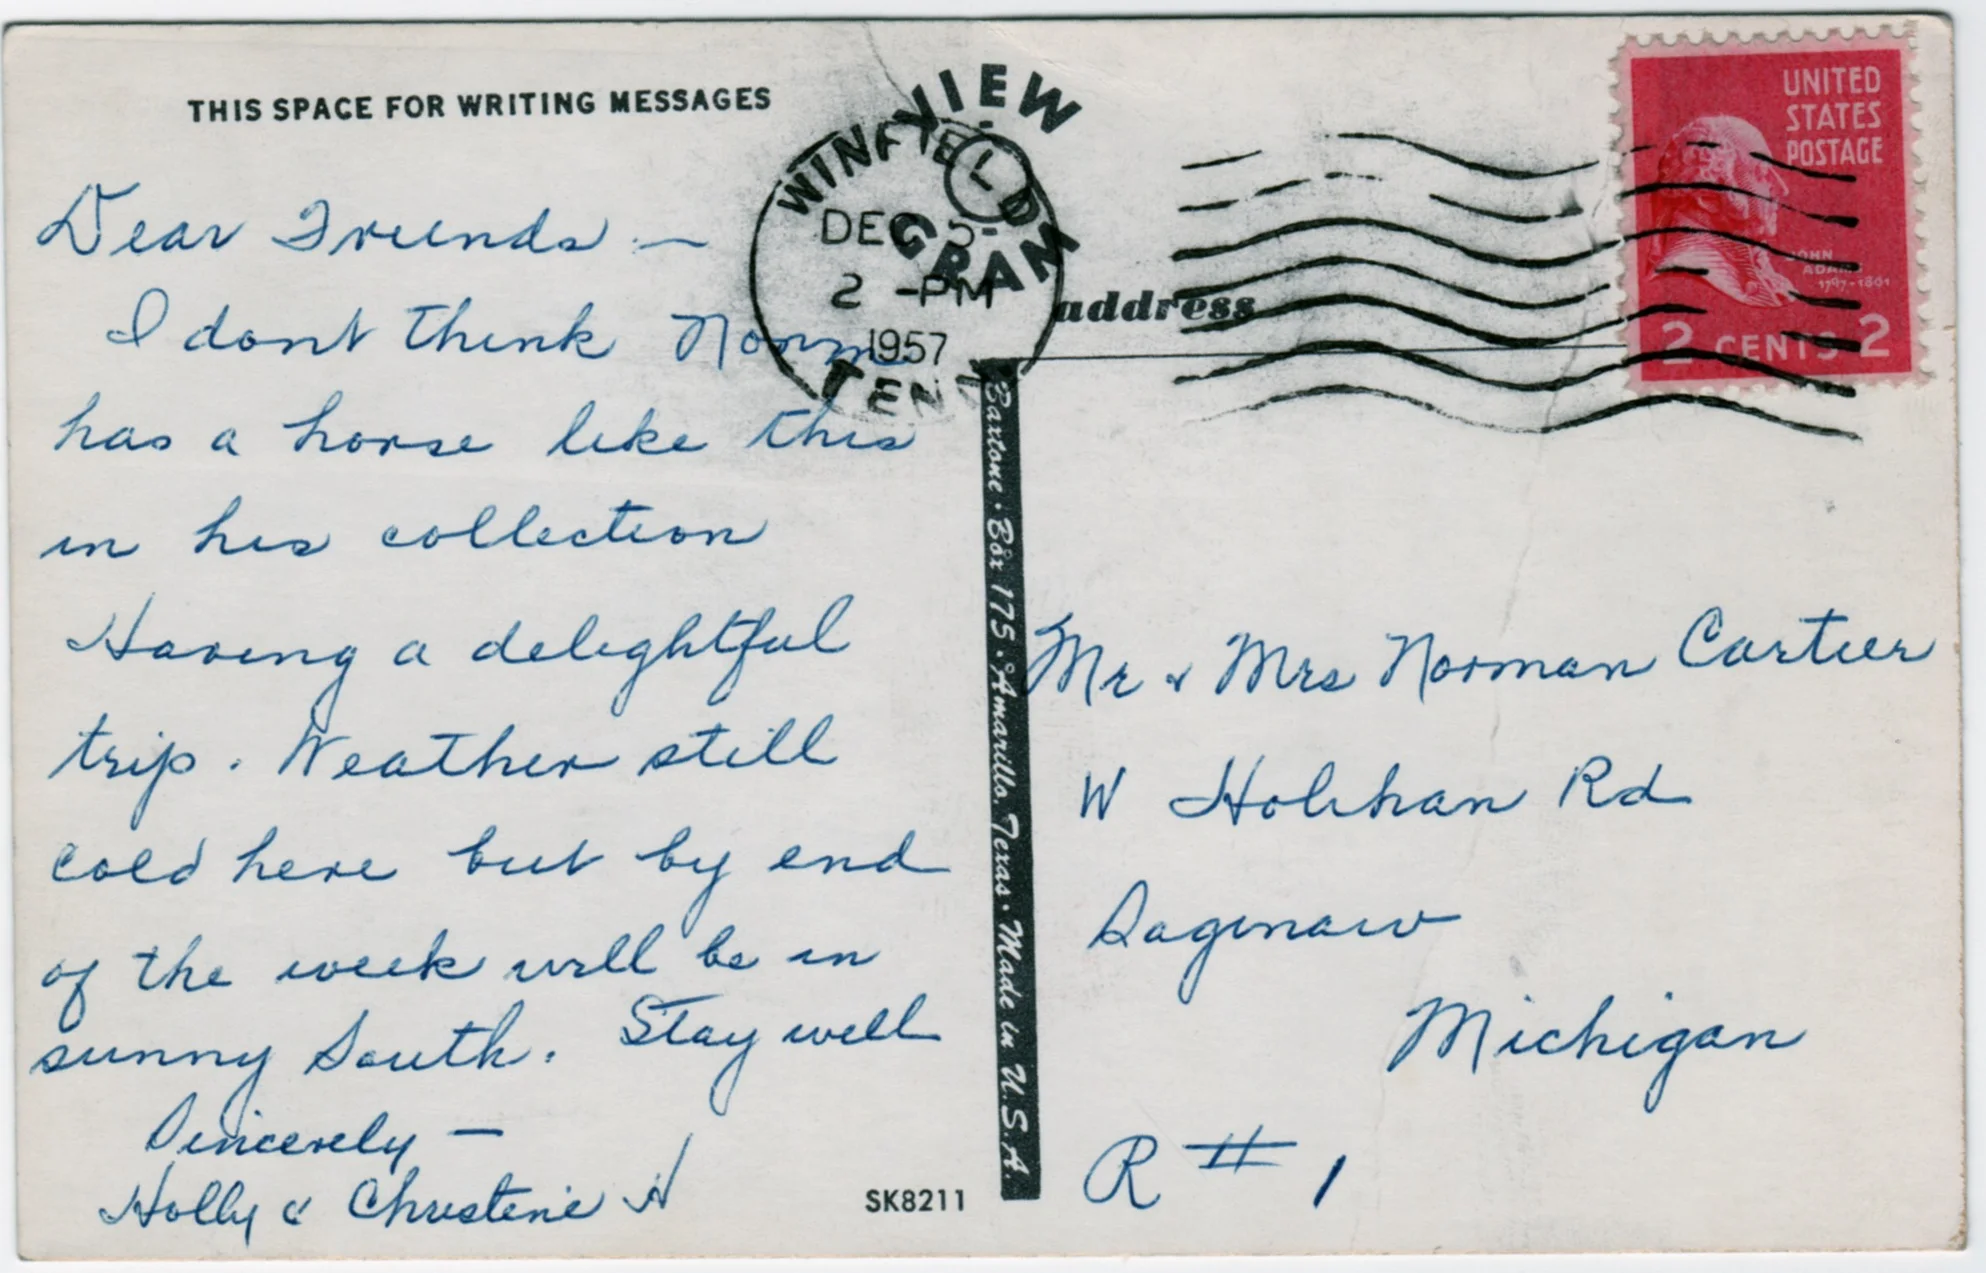 THIS SPACE FOR WRITING MESSAGES
Dear Friends —
I dont think Norm
has a horse like this
in his collection
Having a delightful
trip. Weather still
cold here but by end
of the week will be in
sunny South. Stay well
Sincerely —
Holly & Christine H
SK8211
VIEW
GRAM
WINFIELD
DEC 5
2 -PM
1957
TENN
address
UNITED
STATES
POSTAGE
JOHN
ADAMS
1797-1801
2 CENTS 2
Baxtone · Box 175 · Amarillo, Texas · Made in U.S.A.
Mr & Mrs Norman Cartier
W Holihan Rd
Saginaw
Michigan
R # 1